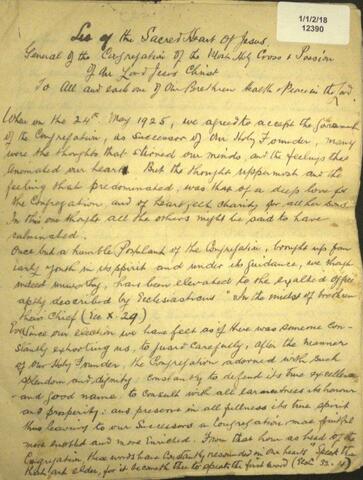 1/1/2/18
12390
Leo of the Sacred Heart Of Jesus,
General of the Congregation of the Most Holy Cross & Passion
Of Our Lord Jesus Christ
To All and each one of Our Brethren health & Peace in the Lord
When on the 24th May 1925, we agreed to accept the Government
of the Congregation, as Successor of Our Holy Founder, many
were the thoughts that stirred our minds, and the feelings that
animated our heart. But the thought uppermost and the
feeling that predominated, was that of a deep love for
the Congregation, and of heartfelt charity for all her Sons.
In this one thought all the others might be said to have
culminated.
Once but a humble of the Congregation, brought up from
early youth in its spirit and under its guidance, we though
indeed unworthy, have been elevated to the exalted Office
aptly described by Ecclesiasticus "In the midst of brethren
their Chief (Ecc X. 29)
Ever since our election we have felt as if there was someone con-
stantly exhorting us, to carefully, after the manner
of Our Holy Founder, the Congregation adorned with such
splendour and dignity: constantly to defend its true excellence
and good name, to consult with all earnestness its honour
and prosperity: and preserve in all fullness its true spirit
thus leaving to our Successors a congregation more fruitful
more and more enriched. From that hour as head of the
Congregation, these words have constantly resounded in our hearts "Speak thou
that art elder, for it becometh thee to speak the first word (Eccl.